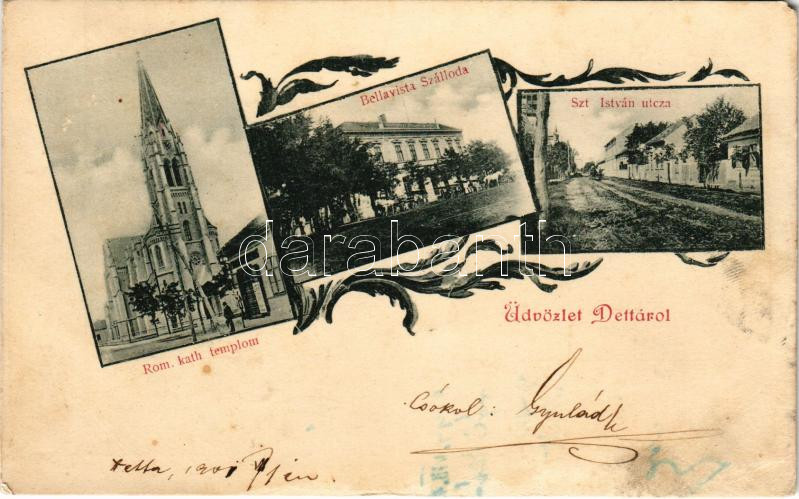 Bellavista Szálloda
Szt István utcza
darabanth
Üdvözlet Dettáról
Rom. kath templom
Csókol:
Detta, 1901